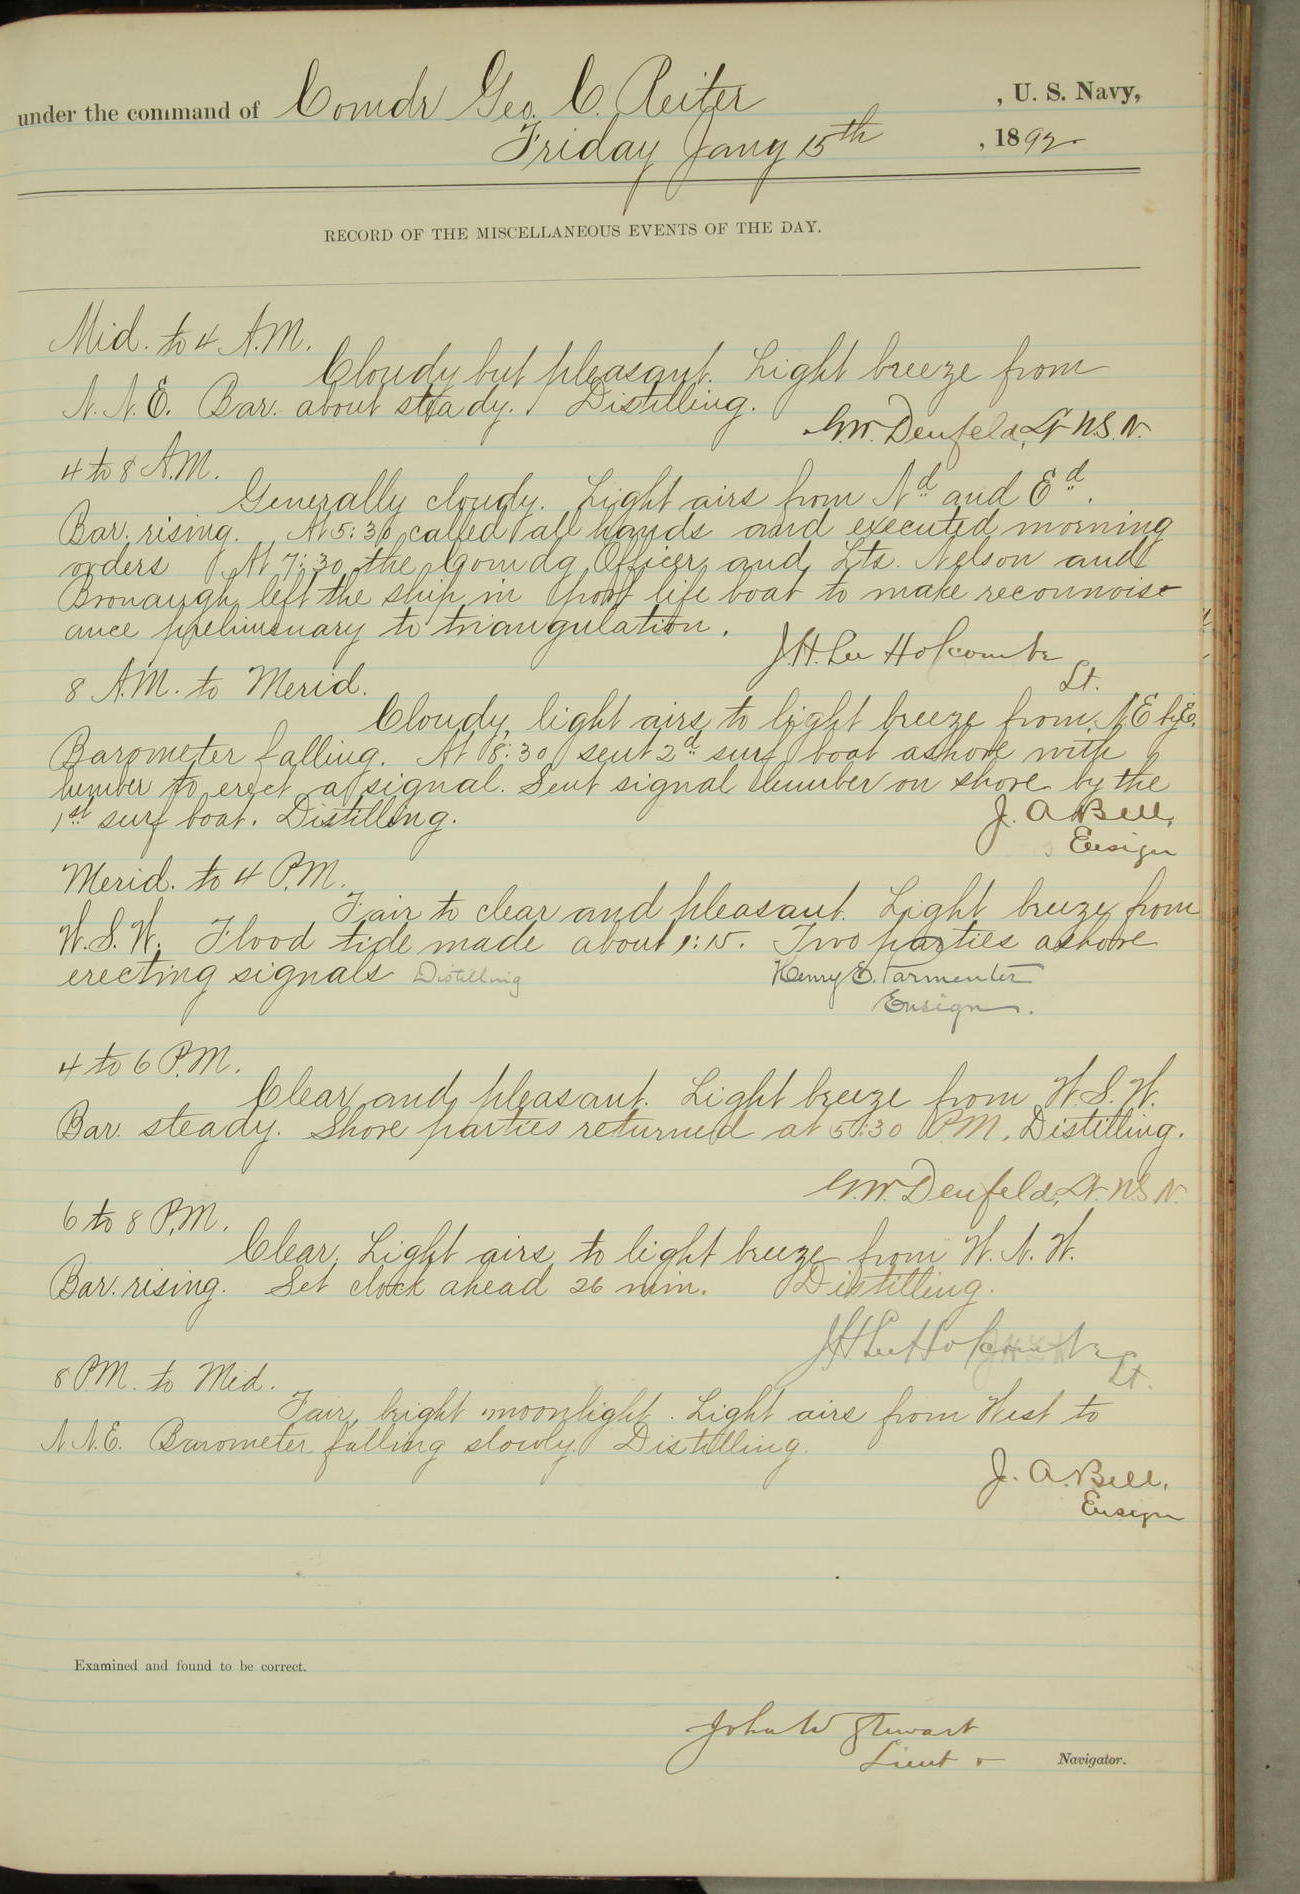 under the command of Comdr Geo. C. Reiter , U. S. Navy,
Friday Jany 15th , 1892
RECORD OF THE MISCELLANEOUS EVENTS OF THE DAY.
Mid. to 4 A.M.
Cloudy but pleasant. Light breeze from
N.N.E. Bar. about steady. Distilling.
G.W. Denfeld, Lt U.S.N.
4 to 8 A.M.
Generally cloudy. Light airs from Nd and Ed.
Bar. rising. At 5:30 called all hands and executed morning
orders At 7:30 the Comdg Officer and Lts. Nelson and
Bronaugh left the ship in port life boat to make reconnois-
ance preliminary to triangulation.
J.H. Lee Holcombe
Lt.
8 A.M. to Merid.
Cloudy, light airs to light breeze from N.E by E.
Barometer falling. At 8:30 sent 2d surf boat ashore with
lumber to erect a signal. Sent signal lumber on shore by the
1st surf boat. Distilling.
J. A. Bell,
Ensign
Merid. to 4 P.M.
Fair to clear and pleasant. Light breeze from
W.S.W. Flood tide made about 1:15. Two parties ashore
erecting signals Distilling
Henry E. Parmenter
Ensign.
4 to 6 P.M.
Clear and pleasant. Light breeze from W.S.W.
Bar. steady. Shore parties returned at 5:30 P.M. Distilling.
G.W. Denfeld, Lt. U.S.N.
6 to 8 P.M.
Clear. Light airs to light breeze from W.N.W.
Bar. rising. Set clock ahead 26 min. Distilling.
J H Lee Holcombe
Lt.
8 P.M. to Mid.
Fair, bright moonlight. Light airs from West to
N.N.E. Barometer falling slowly. Distilling.
J. A. Bell,
Ensign
Examined and found to be correct.
John W Stewart
Lieut & Navigator.